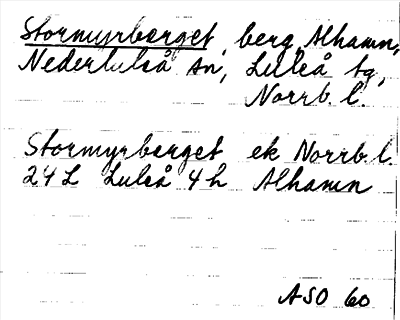 Stormyrberget, berg Alhamn,
Nederluleå sn, Luleå tg,
Norrb. l.
Stormyrberget ek Norrb. l.
24 L Luleå 4 h Alhamn
ASO 60